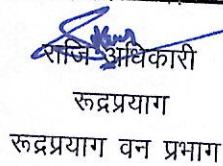 राजि अधिकारी
रूद्रप्रयाग
रूद्रप्रयाग वन प्रभाग